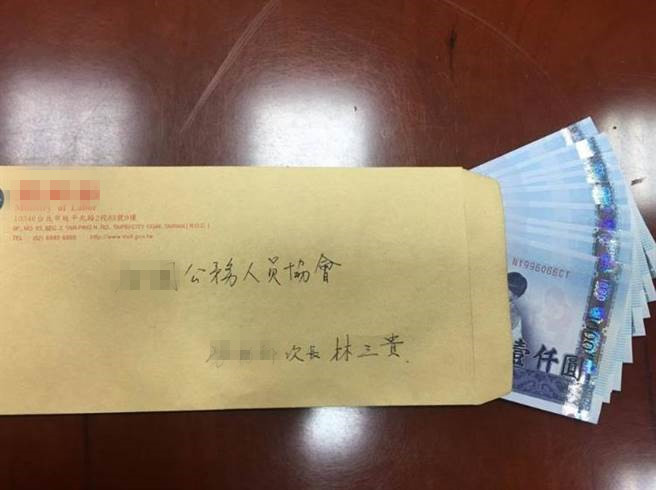 Ministry of Labor
10346台北市延平北路2段83號9樓
9F., NO. 83, SEC. 2, YANPING N. RD., TAIPEI CITY 10346, TAIWAN (R.O.C.)
TEL: (02) 8995 6866 http://www.mol.gov.tw
公務人員協會
次長 林三貴
NY996066CT
壹仟圓